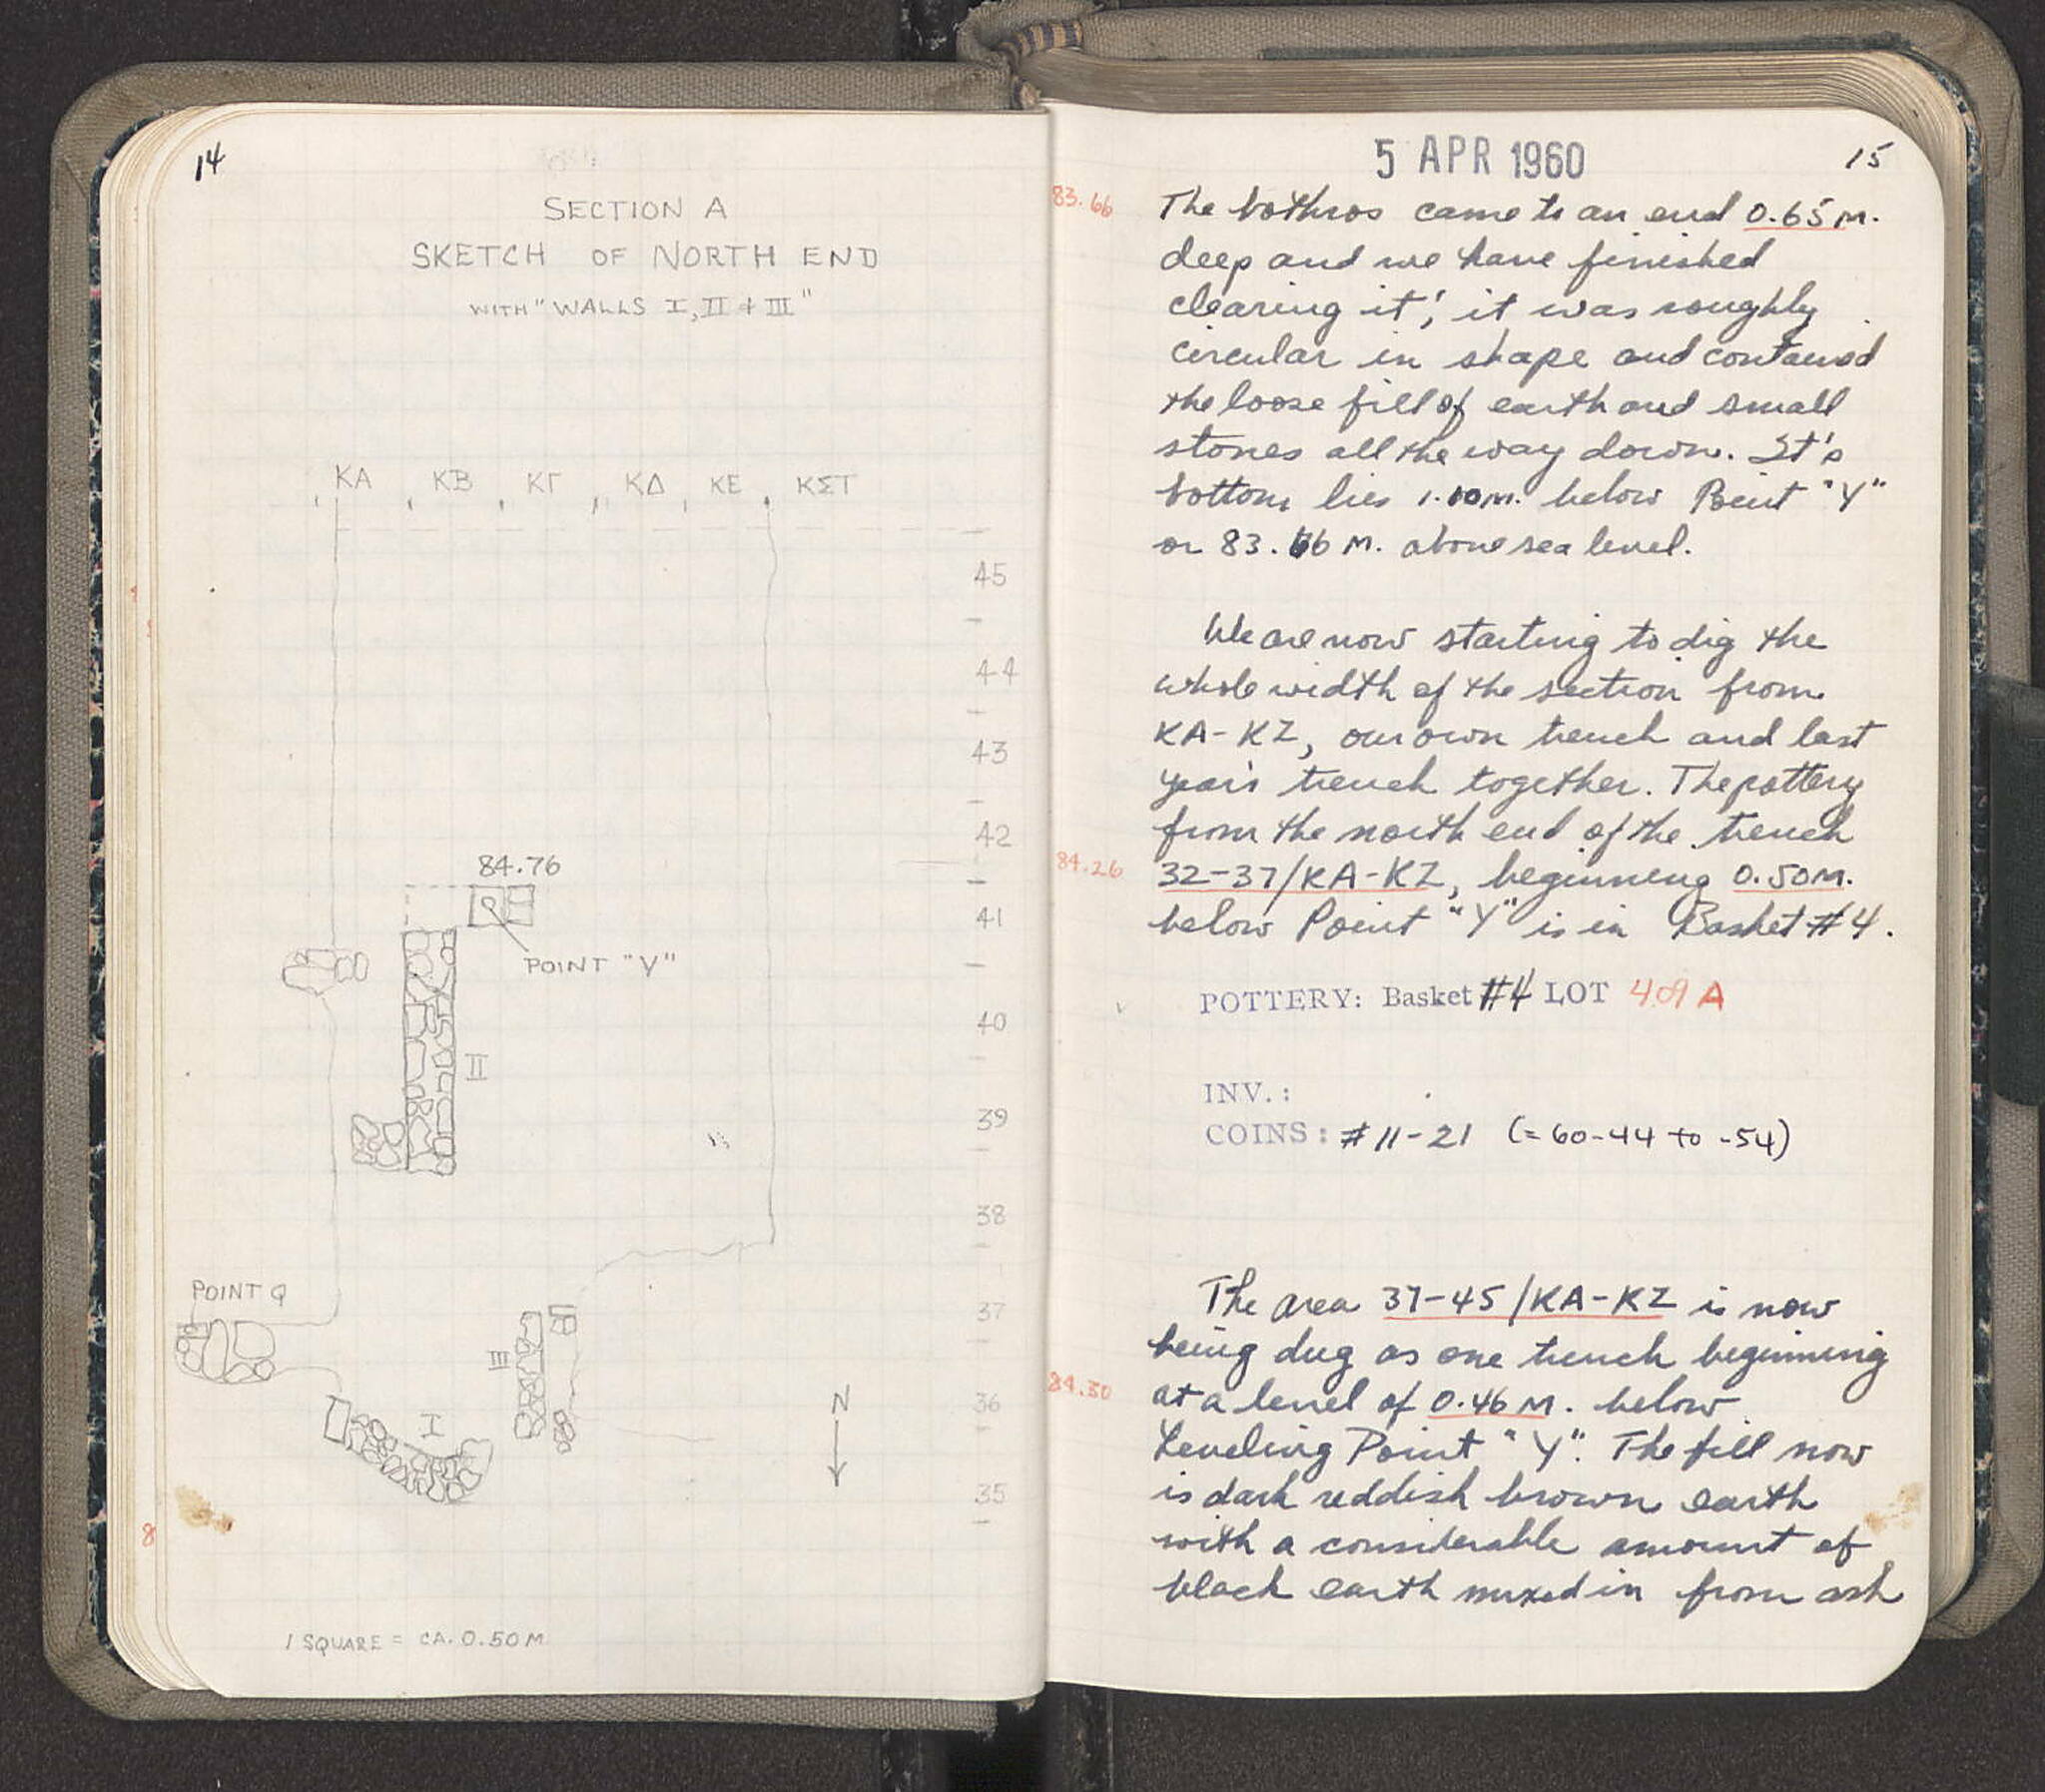 14
SECTION A
SKETCH OF NORTH END
WITH "WALLS I, II + III"
ΚΑ ΚΒ ΚΓ ΚΔ ΚΕ ΚΣΤ
45
44
43
42
84.76
41
POINT "Y"
40
II
39
38
POINT Q
37
III
N
36
I
35
8
1 SQUARE = CA. 0.50 M
5 APR 1960
15
83.66 The bothros came to an end 0.65 M.
deep and we have finished
clearing it; it was roughly
circular in shape and contained
the loose fill of earth and small
stones all the way down. It's
bottom lies 1.10 M. below Point "Y"
or 83.66 M. above sea level.
We are now starting to dig the
whole width of the section from
KA-KZ, our own trench and last
year's trench together. The pottery
from the north end of the trench
84.26 32-37/KA-KZ, beginning 0.50 M.
below Point "Y" is in Basket #4.
POTTERY: Basket #4 LOT 409 A
INV.:
COINS: # 11-21 (= 60-44 to -54)
The area 37-45/KA-KZ is now
being dug as one trench beginning
84.30 at a level of 0.46 M. below
Leveling Point "Y". The fill now
is dark reddish brown earth
with a considerable amount of
black earth mixed in from ash